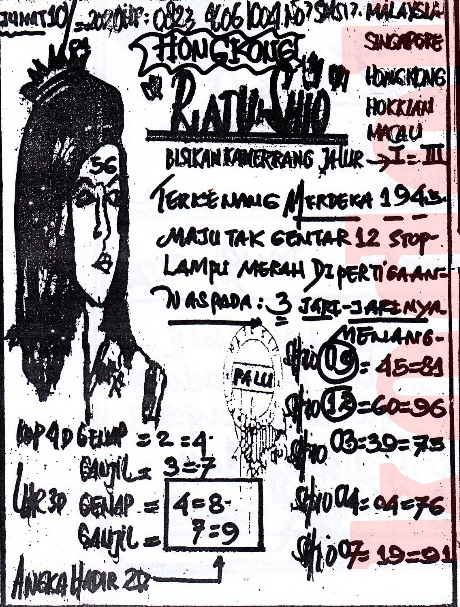 JUMAT 10 = 2020 HP: 0823
MALAYSIA
SINGAPORE
HONGKONG
HOKKIAN
MACAU
HONGKONG
"RATU SHIO"
BISIKAN KAMERRANG JALUR → I = III
TERKENANG MERDEKA 1945
MAJU TAK GENTAR 12 STOP-
LAMPU MERAH DIPERTIGAAN=
WASPADA: 3 JARI-JARINYA
MENANG-
56
PALU
SHIO 09 = 45=81
SHIO 12=60=96
SHIO 03=39=75
SHIO 04=04=76
SHIO 07=19=91
KOP 4D GENAP = 2=4
GANJIL = 3=7
EKOR 3D GENAP = 4=8-
GANJIL = 7=9
ANGKA HADIR 2D